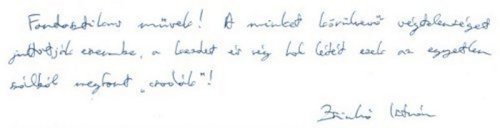 Fantasztikus művek! A minket körülvevő végtelenséget
juttatják eszembe, a kezdet és vég nélküli létét ezek az egyetlen
szálból megfont "csodák"!
István